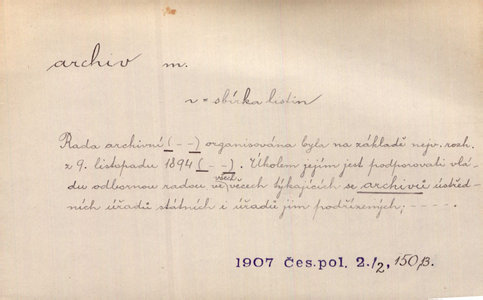 archiv m.
v = sbírka listin
Rada archivní (- -) organisována byla na základě nejv. rozh.
z 9. listopadu 1894 (- -). Úkolem jejím jest podporovati vlá-
du odbornou radou ve všech věcech týkajících se archivů ústřed-
ních úřadů státních i úřadů jim podřízených; - - - -.
1907 Čes. pol. 2./2, 150β.